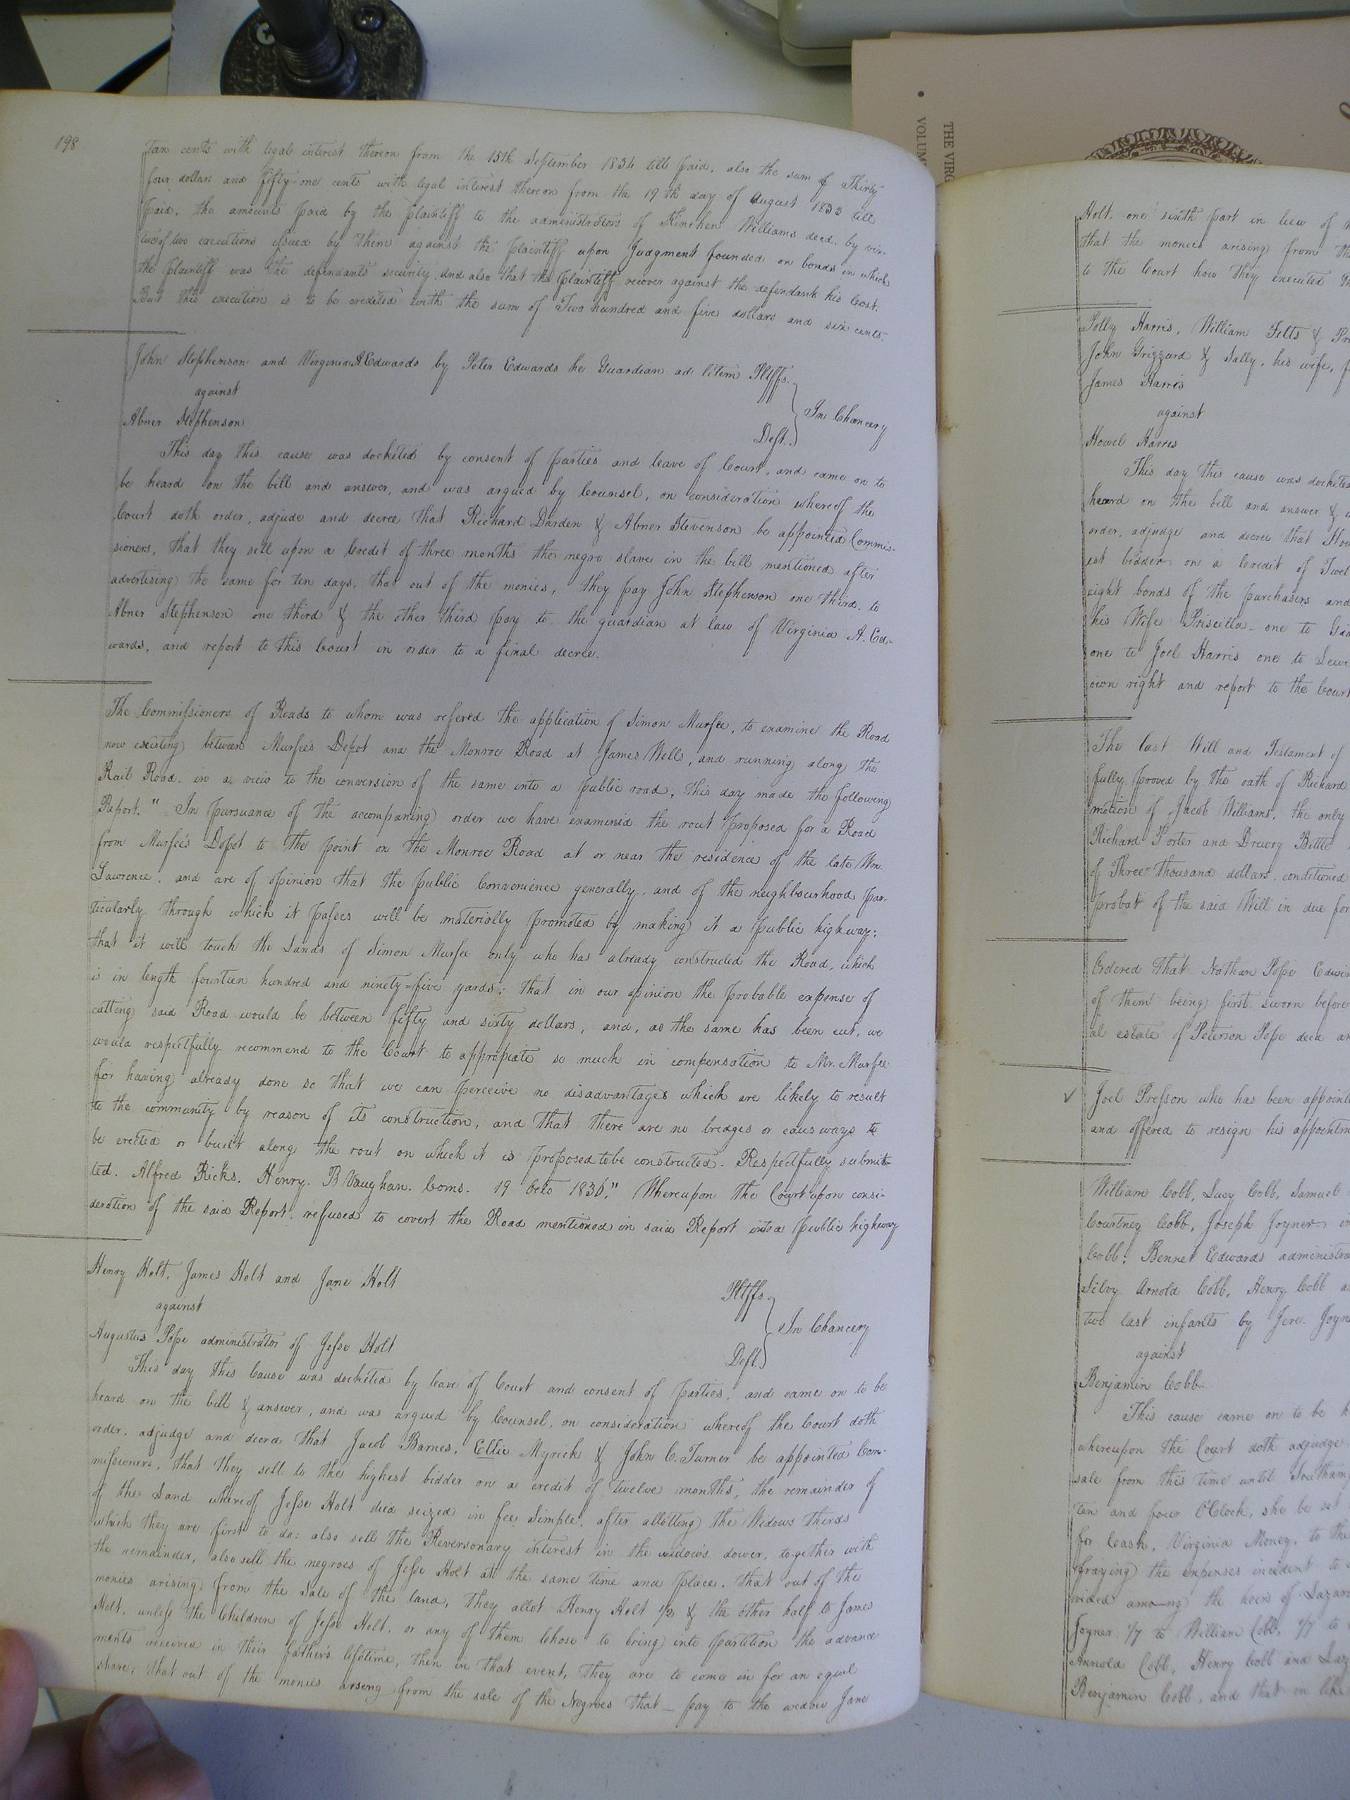 198
Ten cents with legal interest thereon from the 15th September 1834 till paid, also the sum of Thirty
four dollars and fifty-one cents with legal interest thereon from the 19th day of August 1833 till
paid, the amounts paid by the plaintiff to the administrators of Kinchen Williams decd. by vir-
tue of two executions issued by them against the plaintiff upon Judgment founded on bonds in which
the plaintiff was the defendants security, and also that the plaintiff recover against the defendant his Cost.
But this execution is to be credited with the sum of Two hundred and five dollars and six cents.
John Stephenson and Virginia A Edwards by Peter Edwards he Guardian ad litem Pltffs.
against
In Chancery
Abner Stephenson Deft.
This day this cause was docketed by consent of parties and leave of Court, and came on to
be heard on the bill and answer, and was argued by Counsel, on consideration whereof the
Court doth order, adjude and decree that Richard Darden & Abner Stevenson be appointed Commis-
sioners, that they sell upon a Credit of three months the negro slave in the bill mentioned after
advertising the same for ten days, that out of the monies, they pay John Stephenson one third, to
Abner Stephenson one third & the other third pay to the guardian at law of Virginia A. Ed-
wards, and report to this Court in order to a final decree.
The Commissioners of Roads to whom was refered the application of Simon Murfee, to examine the Road
now existing between Murfee's Depot and the Monroe Road at James Wells, and running along the
Rail Road, in a view to the conversion of the same into a public road, This day made the following
Report. " In pursuance of the accompaning order we have examined the rout proposed for a Road
from Murfee's Depot to the point on the Monroe Road at or near the residence of the late Wm.
Lawrence, and are of opinion that the public Convenience generally, and of the neighbourhood par-
ticularly through which it passes will be materially promoted by making it a public highway;
that it will touch the Lands of Simon Murfee only who has already constructed the Road, which
is in length fourteen hundred and ninety-five yards; that in our opinion the probable expense of
cutting said Road would be between fifty and sixty dollars, and, as the same has been cut, we
would respectfully recommend to the Court to appropiate so much in compensation to Mr. Murfee
for having already done so that we can perceive no disadvantages which are likely to result
to the community by reason of its construction, and that there are no bridges or causways to
be erected or built along the rout on which it is proposed to be constructed. Respectfully submit-
ted. Alfred Ricks. Henry. B Vaughan. Coms. 19 Octo 1836." Whereupon the Court upon consi-
deration of the said Report, refused to covert the Road mentioned in said Report into a public highway
Henry Holt, James Holt and Jane Holt Pltffs.
against
In Chancery
Augustus Pope administrator of Jesse Holt Deft.
This day this Cause was docketed by leave of Court and consent of parties, and came on to be
heard on the bill & answer, and was argued by Counsel, on consideration whereof the Court doth
order, adjudge and decred that Jacob Barnes, Ellie Myrick & John C. Turner be appointed Com-
missioners, that they sell to the highest bidder on a credit of twelve months, the remainder of
of the Land whereof Jesse Holt died seized in fee Simple, after allotting the Widows thirds
which they are first to do; also sell the Reversonary interest in the widow's dower, together with
the remainder, also sell the negroes of Jesse Holt at the same time and place, that out of the
monies arising from the sale of the land, they allot Henry Holt 1/2 & the other half to James
Holt, unless the Children of Jesse Holt, or any of them Chose to bring into partition the advance
ments received in their father's lifetime, then in that event, they are to come in for an equal
share; that out of the monies arising from the sale of the Negroes that — pay to the widow Jane
THE VIRG
VOLUM
Holt, one sixth part in lieu of
that the monies arising from
to the Court how they executed
Polly Harris, William Felts &
John Grizzard & Sally, his wife,
James Harris
against
Howel Harris
This day this cause was docketed
heard on the bill and answer &
order, adjudge and decree that
est bidder on a Credit of
eight bonds of the purchasers and
his Wife Priscilla one to
one to Joel Harris one to
own right and report to the Court
The last Will and Testament of
fully proved by the oath of Richard
motion of Jacob Williams, the only
Richard Porter and Drewry Bittle
of Three Thousand dollars, conditioned
probat of the said Will in due
Ordered that Nathan Pope
of them being first sworn before
al estate of Peterson Pope decd
✓ Joel Presson who has been
and offered to resign his
William Cobb, Lucy Cobb, Samuel
Courtney Cobb, Joseph Joyner
Cobb; Bennet Edwards
Silvy Arnold Cobb, Henry Cobb
two last infants by Jere.
against
Benjamin Cobb
This cause came on to be
whereupon the Court doth adjudge
sale from this time until
ten and four O'Clock, she be
for Cash, Virginia Money, to
fraying the expenses incident to
vided among the heirs of
Joyner 1/7 to William Cobb, 1/7 to
Arnold Cobb, Henry Cobb and
Benjamin Cobb, and that on like